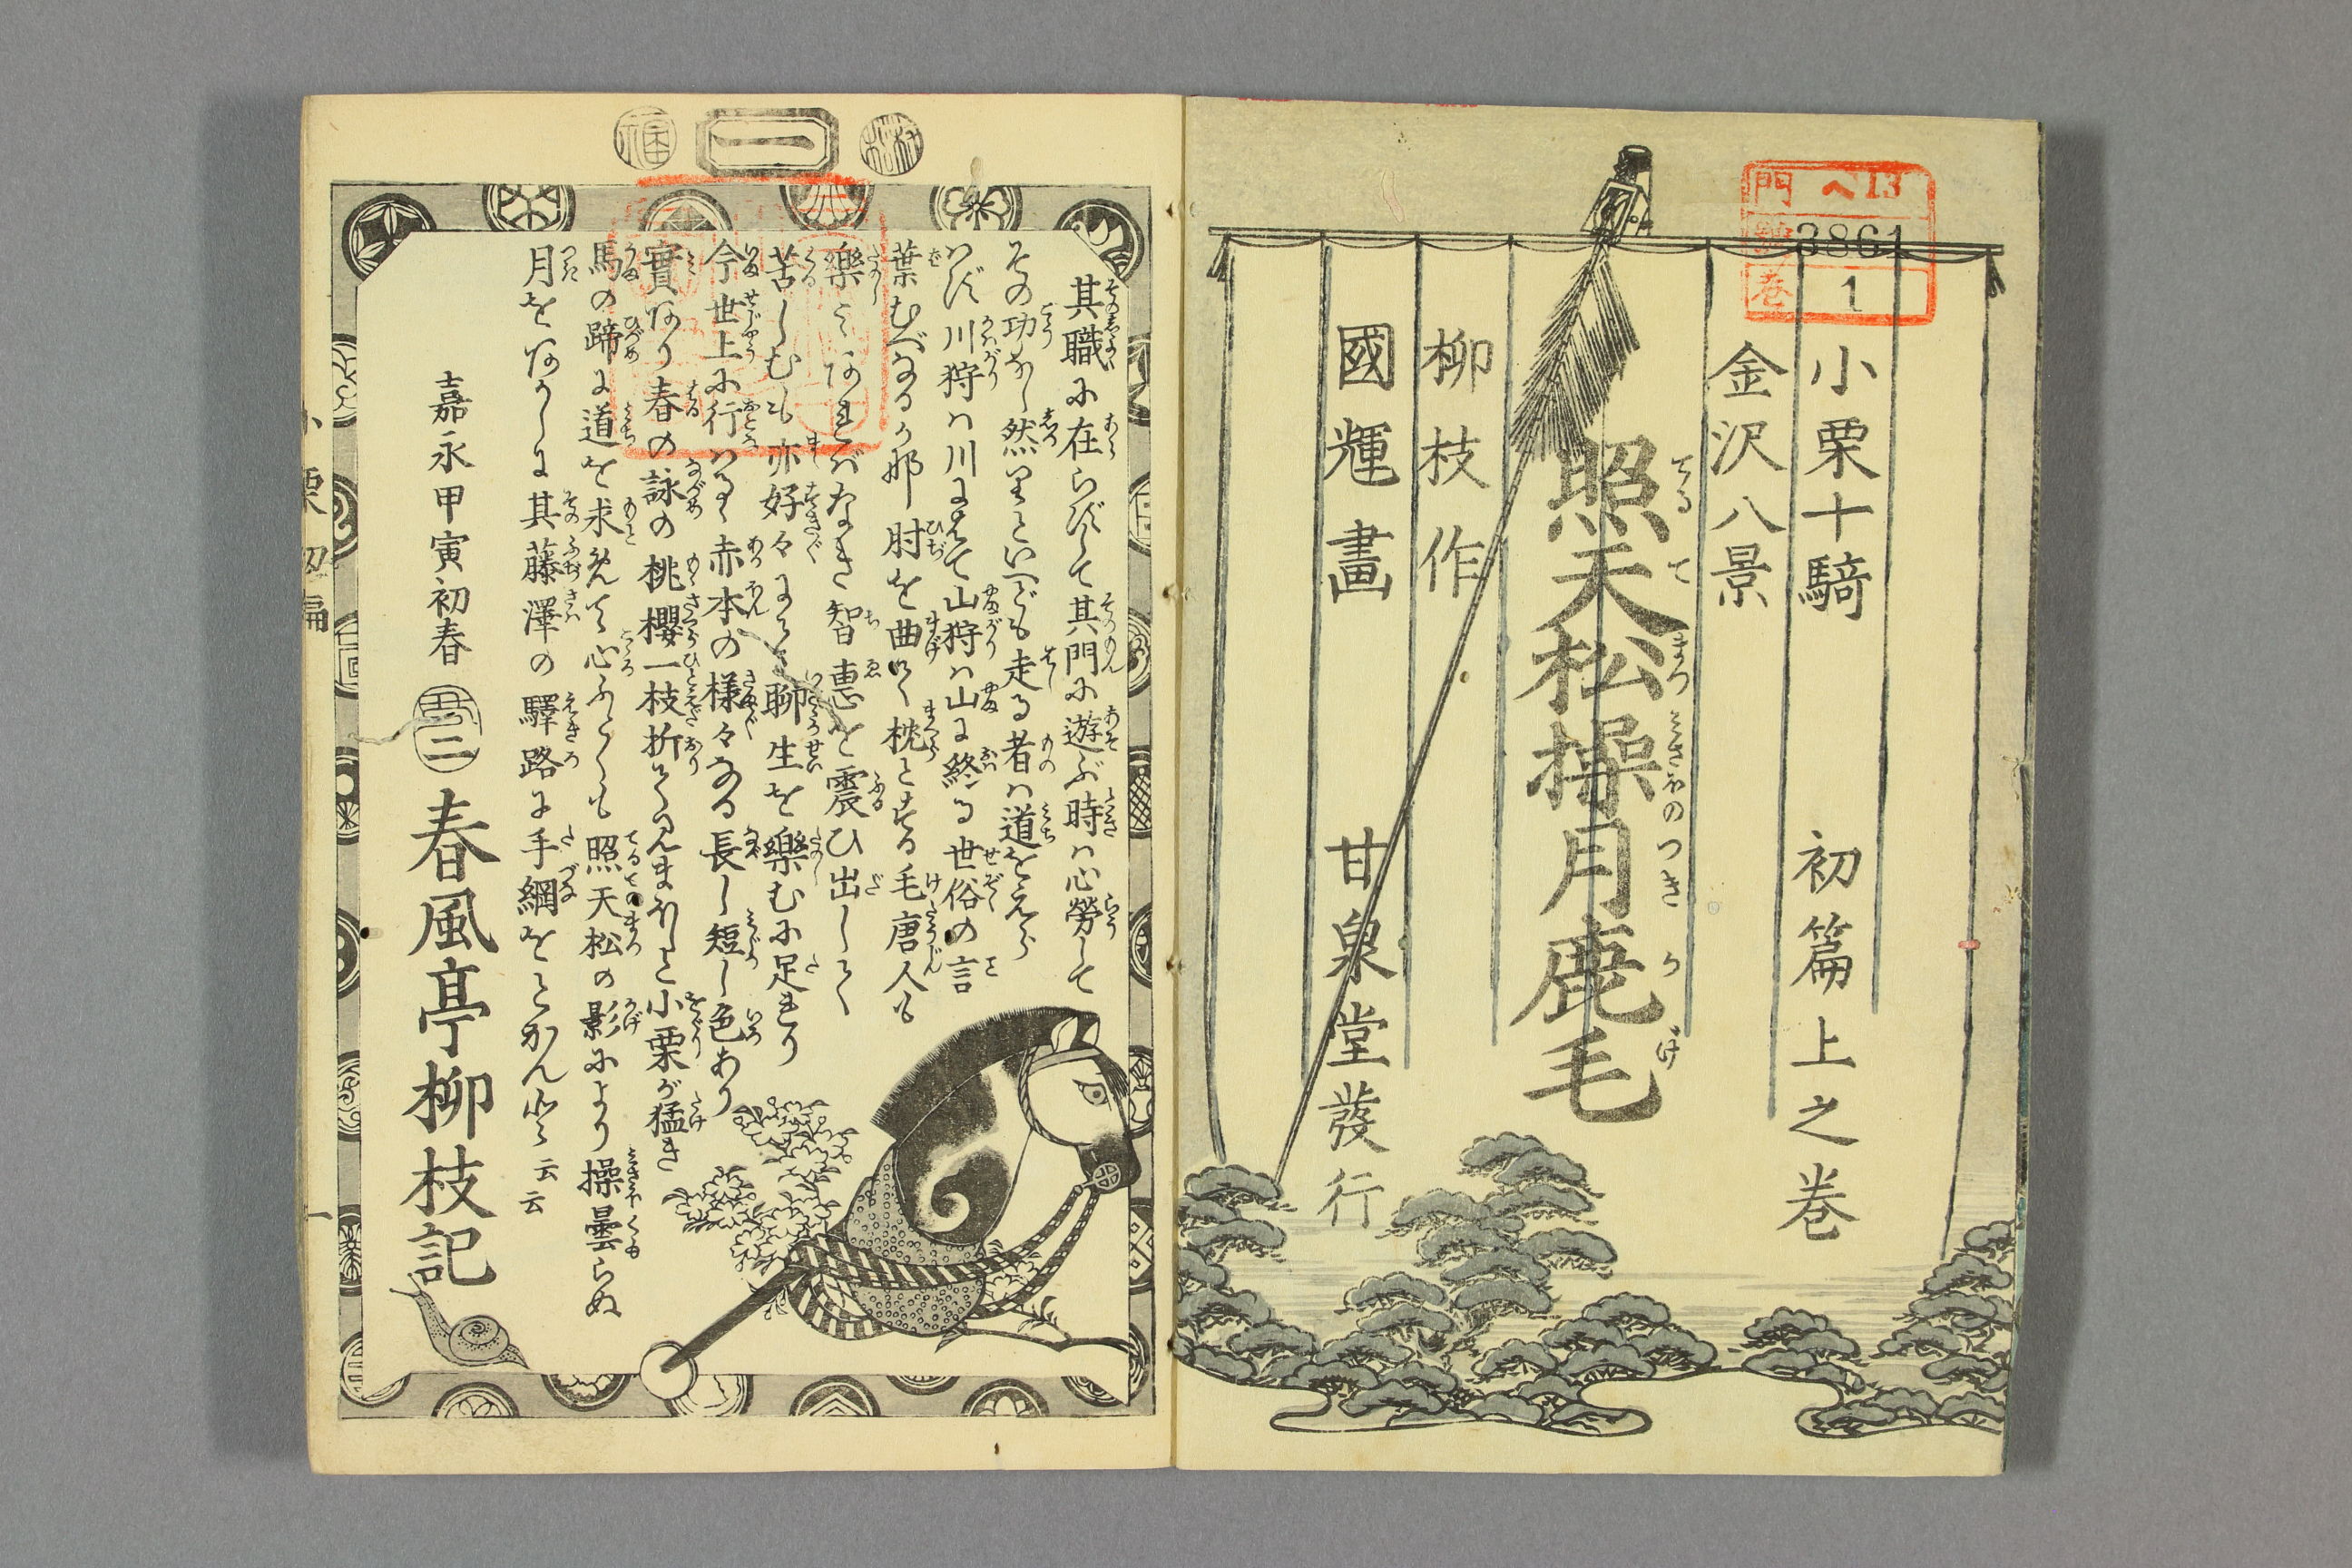 門 ヘ13
號 3861
巻 1
小栗十騎 初篇上之巻
金沢八景
照天松操月鹿毛
てるてまつみさほのつきかげ
柳枝作
國輝畫 甘泉堂發行
一
其職に在らずして其門に遊ぶ時は心勞して
その功なし然りといへども走る者は道をえら
はず川狩は川にはて山狩は山に終る世俗の言
葉むべなるか那肘を曲て枕とする毛唐人も
樂こゝにあればなき智惠を震ひ出してく
苦しむも亦好々にして聊生を樂むに足れり
今世上に行はるゝ赤本の様々なる長し短し色あり
實あり春の詠の桃櫻一枝折てくんまほしと小栗が猛き
馬の蹄に道を求めても心ふとくも照天松の影により操曇らぬ
月をあかしに其藤澤の驛路に手綱をとかん而已云云
嘉永甲寅初春
春風亭柳枝記
小栗初編 一